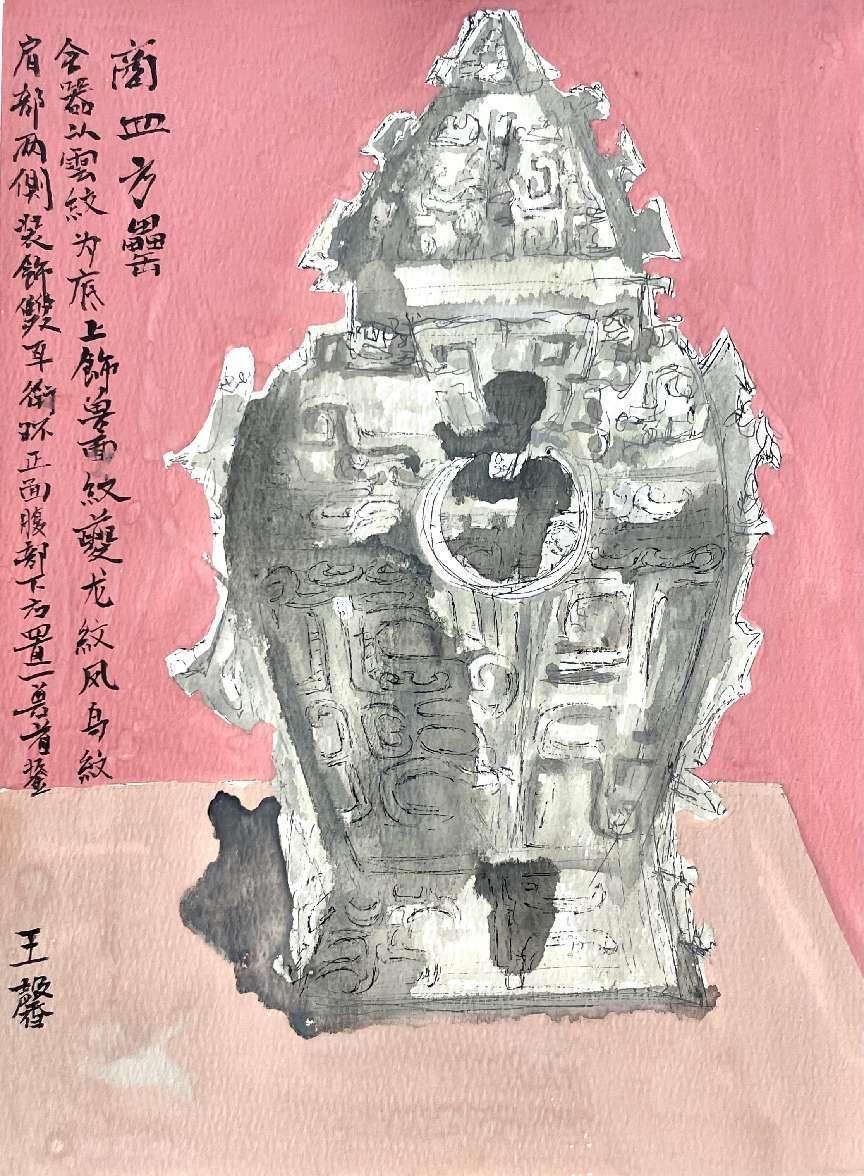 商皿方罍
全器以雲紋为底上飾兽面紋夔龙紋凤鸟紋
肩部两側装飾雙耳銜环正面腹部下方置一兽首鋬
王馨